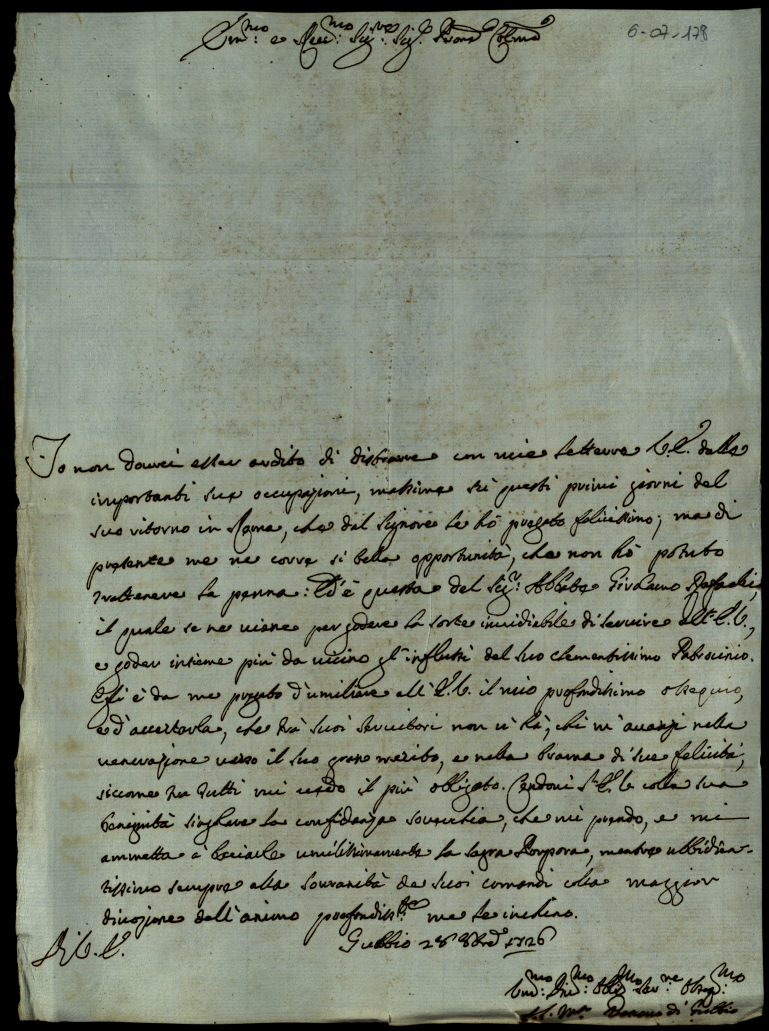 Em.mo e Rev.mo Sig.re Sig. Pron. Col.mo
6-07-178
Io non dovrei esser ardito di distrarre con mie lettere V.E. dalle
importanti sue occupazioni, massime ne questi primi giorni del
suo ritorno in Roma, che dal Signore le hò pregato felicissimo; ma di
presente me ne corre si bella opportunità, che non hò potuto
trattenere la penna: Ed'è questa del Sig.r Abbate Girolamo Raffaelli,
il quale se ne viene per godere la sorte invidiabile di servire all'E.V.,
e goder insieme più da vicino gl'influssi del suo clementissimo Patrocinio.
Egli è da me pregato d'umiliare all'E.V. il mio profondissimo ossequio,
e d'accertarla, che trà suoi servitori non v'hà, chi m'avanzi nella
venerazione verso il suo gran merito, e nella brama di sue felicità,
siccome tra tutti mi vedo il più obligato. Condoni l'E.V. colla sua
benignità singolare la confidenza soverchia, che mi prendo, e mi
ammetta à baciarle umilissimamente la sagra Porpora, mentre ubbidien-
tissimo sempre alla sovranità de suoi comandi colla maggior
divozione dell'animo profondiss.te me le inchino.
Di V.E.
Gubbio 28 8bre 1726
Um.mo Div.mo Obl.mo Ser.re Osseq.mo
di Gubbio